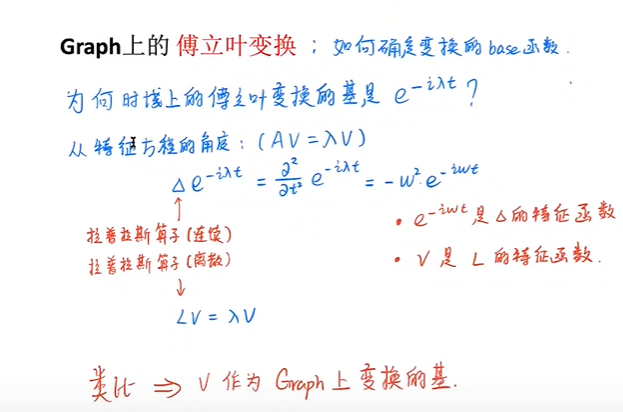 Graph上的 傅立叶变换 ; 如何确定变换的base函数.
为何时域上的傅立叶变换的基是 e^{-iλt} ?
从特征方程的角度: (AV=λV)
Δ e^{-iλt} = ∂²/∂t² e^{-iλt} = -w²·e^{-iwt}
拉普拉斯算子(连续)
拉普拉斯算子(离散)
• e^{-iwt} 是Δ的特征函数
• V 是 L 的特征函数.
LV = λV
类比 ⇒ V 作为 Graph 上变换的基.